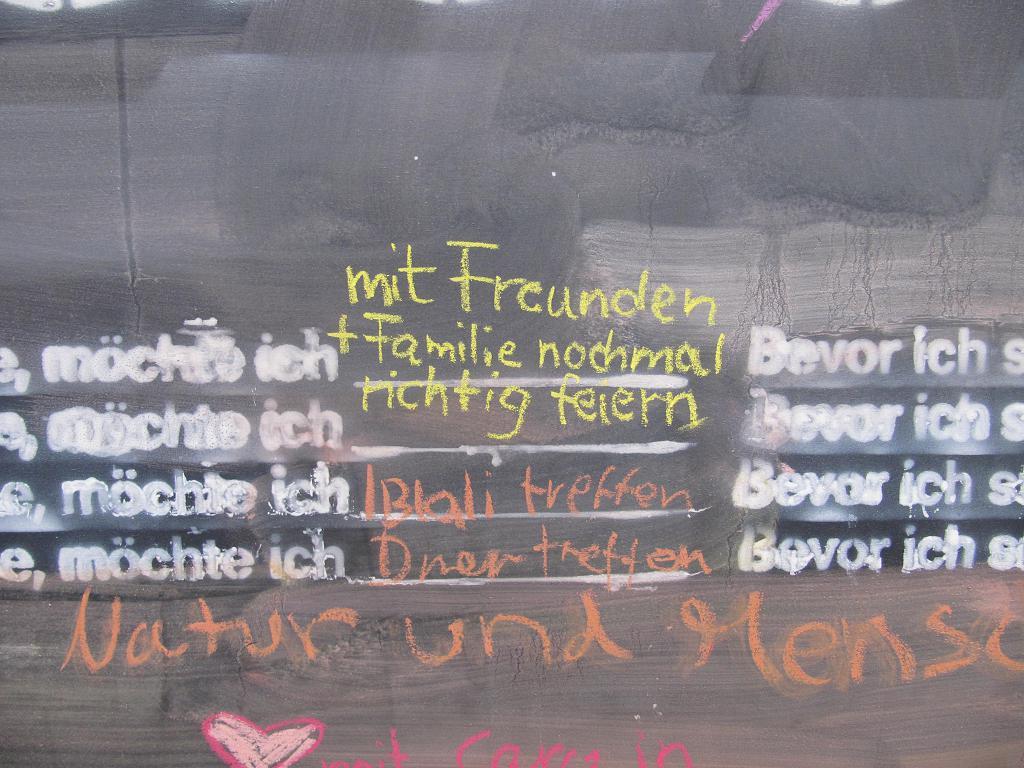 mit Freunden
+ Familie nochmal
richtig feiern
e, möchte ich Bevor ich s
e, möchte ich Bevor ich s
e, möchte ich treffen Bevor ich s
e, möchte ich treffen Bevor ich s
Natur und Mensc
mit in